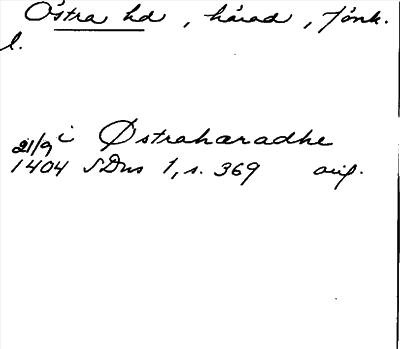 Östra hd, härad, Jönk.
l.
i Østraharadhe
21/9
1404 SDns 1, s. 369 orig.